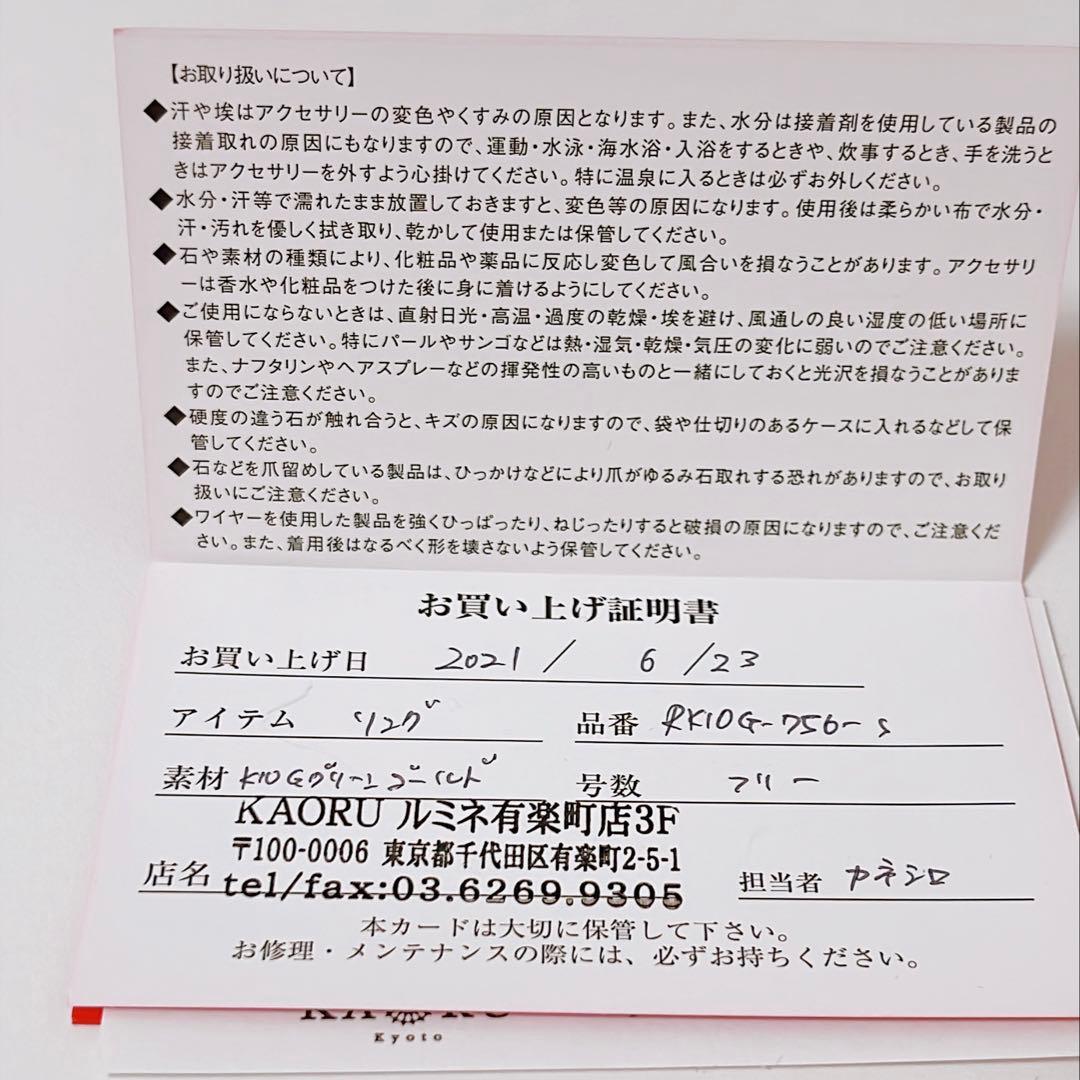 【お取り扱いについて】
◆汗や埃はアクセサリーの変色やくすみの原因となります。また、水分は接着剤を使用している製品の
接着取れの原因にもなりますので、運動・水泳・海水浴・入浴をするときや、炊事するとき、手を洗うと
きはアクセサリーを外すよう心掛けてください。特に温泉に入るときは必ずお外しください。
◆水分・汗等で濡れたまま放置しておきますと、変色等の原因になります。使用後は柔らかい布で水分・
汗・汚れを優しく拭き取り、乾かして使用または保管してください。
◆石や素材の種類により、化粧品や薬品に反応し変色して風合いを損なうことがあります。アクセサリ
ーは香水や化粧品をつけた後に身に着けるようにしてください。
◆ご使用にならないときは、直射日光・高温・過度の乾燥・埃を避け、風通しの良い湿度の低い場所に
保管してください。特にパールやサンゴなどは熱・湿気・乾燥・気圧の変化に弱いのでご注意ください。
また、ナフタリンやヘアスプレーなどの揮発性の高いものと一緒にしておくと光沢を損なうことがありま
すのでご注意ください。
◆硬度の違う石が触れ合うと、キズの原因になりますので、袋や仕切りのあるケースに入れるなどして保
管してください。
◆石などを爪留めしている製品は、ひっかけなどにより爪がゆるみ石取れする恐れがありますので、お取り
扱いにご注意ください。
◆ワイヤーを使用した製品を強くひっぱったり、ねじったりすると破損の原因になりますので、ご注意くだ
さい。また、着用後はなるべく形を壊さないよう保管してください。
お買い上げ証明書
お買い上げ日 2021 / 6 /23
アイテム リング 品番 RK10G-756-S
素材 K10Gグリーンゴールド 号数 フリー
KAORU ルミネ有楽町店3F
〒100-0006 東京都千代田区有楽町2-5-1
店名 tel/fax:03.6269.9305 担当者 カネシロ
本カードは大切に保管して下さい。
お修理・メンテナンスの際には、必ずお持ちください。
KAORU
Kyoto